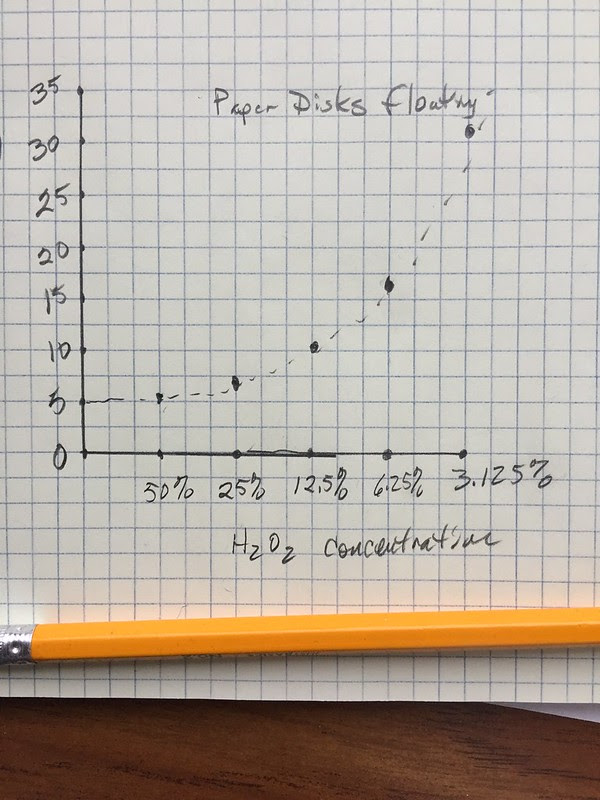 Paper Disks Floating
35
30
25
20
15
10
5
0
50% 25% 12.5% 6.25% 3.125%
H2O2 Concentration